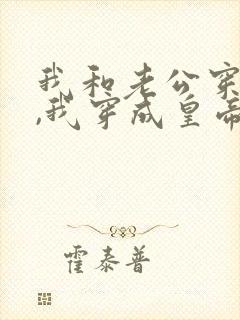 我和老公穿
,我穿成皇帝
霍泰普